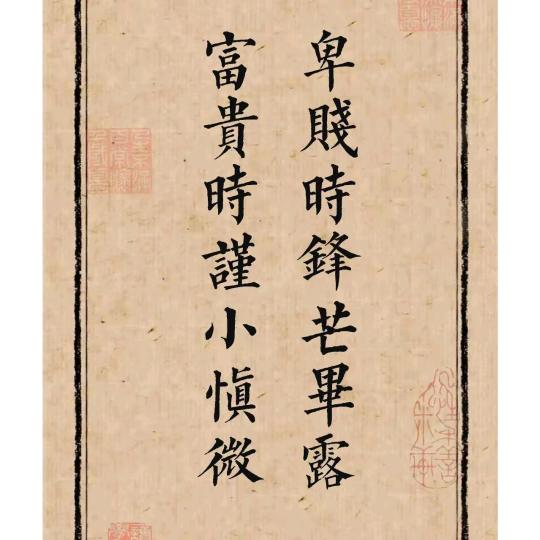 卑賤時鋒芒畢露
富貴時謹小慎微